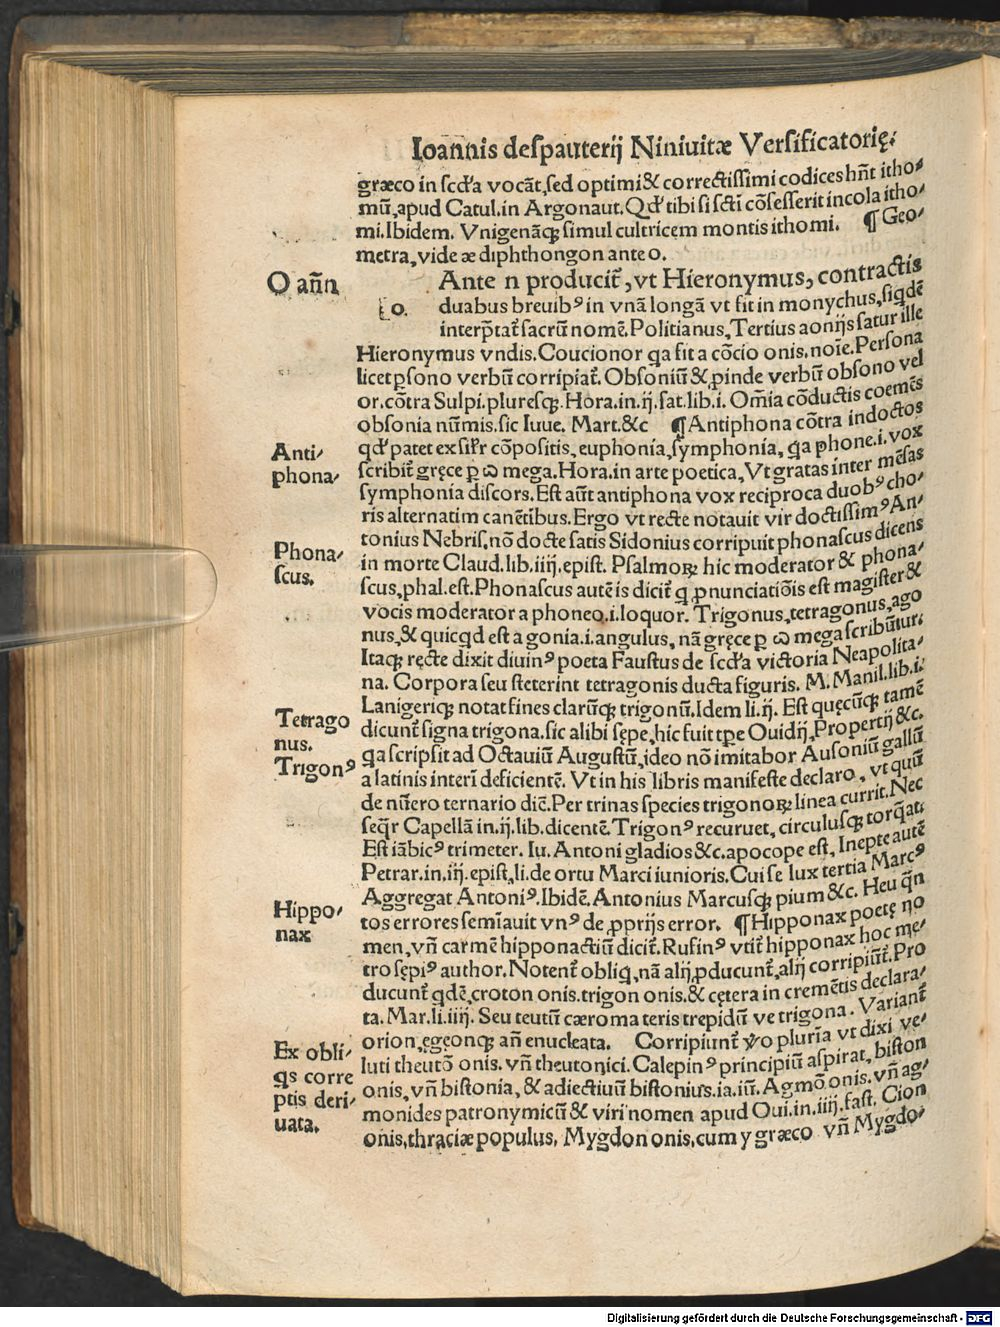 Ioannis despauterij Niniuitæ Versificatorię.
græco in scďa vocãt, sed optimi & correctissimi codices hñt itho-
mũ, apud Catul. in Argonaut. Qď tibi si scti cõsesserit incola itho-
mi. Ibidem. Vnigenãqꝫ simul cultricem montis ithomi. ¶ Geo-
metra, vide æ diphthongon ante o.
O añ n
Ante n producit̃, vt Hieronymus, contractis
o. duabus breuibꝰ in vnã longã vt fit in monychus, siqdẽ
interp̃tat̃ sacrũ nomẽ. Politianus, Tertius aonijs satur ille
Hieronymus vndis. Coucionor qa fit a cõcio onis. noĩe. Persona
licet ꝑsono verbũ corripiat̃. Obsoniũ &, ꝓinde verbũ obsono vel
or. cõtra Sulpi. pluresqꝫ. Hora. in. ij. sat. lib. i. Om̃ia cõductis coemẽs
obsonia nũmis. sic Iuue. Mart. &c ¶ Antiphona cõtra indoctos
Anti-
phona-
qď patet ex sif̃r cõpositis, euphonia, symphonia, qa phone. i. vox
scribit̃ gręce ꝑ ω mega. Hora. in arte poetica, Vt gratas inter mẽsas
symphonia discors. Est aũt antiphona vox reciproca duobꝰ cho-
ris alternatim canẽtibus. Ergo vt recte notauit vir doctissimꝰ An-
tonius Nebris. nõ docte satis Sidonius corripuit phonascus dicens
Phona-
scus.
in morte Claud. lib. iiij. epist. Psalmoꝝ hic moderator & phona-
scus, phal. est. Phonascus autẽ is dicit̃ q ꝓnunciatiõis est magister &
vocis moderator a phoneo. i. loquor. Trigonus, tetragonus, ago
nus, & quicqd est a gonia. i. angulus, nã gręce ꝑ ω mega scribũtur.
Itaqꝫ ręcte dixit diuinꝰ poeta Faustus de scďa victoria Neapolita-
na. Corpora seu steterint tetragonis ducta figuris. M. Manil. lib. i.
Lanigeriqꝫ notat fines clarũqꝫ trigonũ. Idem li. ij. Est quęcũqꝫ tamẽ
Tetrago
nus.
Trigonꝰ
dicunt̃ signa trigona. sic alibi sępe, hic fuit tp̃e Ouidij, Propertij &c.
qa scripsit ad Octauiũ Augustũ, ideo nõ imitabor Ausoniũ gallũ
a latinis interĩ deficientẽ. Vt in his libris manifeste declaro, vt quũ
de nũero ternario diẽ. Per trinas species trigonoꝝ linea currit. Nec
seqr̃ Capellã in. ij. lib. dicentẽ. Trigonꝰ recuruet, circulusqꝫ torqat.
Est iãbicꝰ trimeter. Iu. Antoni gladios &c. apocope est, Inepte autẽ
Petrar. in. iij. epist, li. de ortu Marci iunioris. Cui se lux tertia Marcꝰ
Aggregat Antoniꝰ. Ibidẽ. Antonius Marcusqꝫ pium &c. Heu q̃n
tos errores semĩauit vnꝰ de ꝓprijs error. ¶ Hipponax poetę no
Hippo-
nax
men, vñ carmẽ hipponactiũ dicit̃. Rufinꝰ vtit̃ hipponax hoc me-
tro sępiꝰ author. Notent̃ obliq, nã alij, ꝓducunt̃, alij corripiũt̃. Pro
ducunt̃ qdẽ, croton onis. trigon onis. & cętera in cremẽtis declara-
ta. Mar. li. iiij. Seu teutũ cæroma teris trepidũ ve trigona. Variant̃
orion, egeonqꝫ añ enucleata. Corripiunt̃ ṽo pluria vt dixi ve-
Ex obli-
qs corre
ptis deri-
uata.
luti theutõ onis. vñ theutonici. Calepinꝰ principiũ aspirat, biston
onis, vñ bistonia, & adiectiuũ bistonius. ia. iũ. Agmõ onis. vñ ag-
monides patronymicũ & viri nomen apud Oui. in. iiij. fast. Cion
onis, thraciæ populus, Mygdon onis, cum y græco vñ Mygdo-
Digitalisierung gefördert durch die Deutsche Forschungsgemeinschaft - DFG